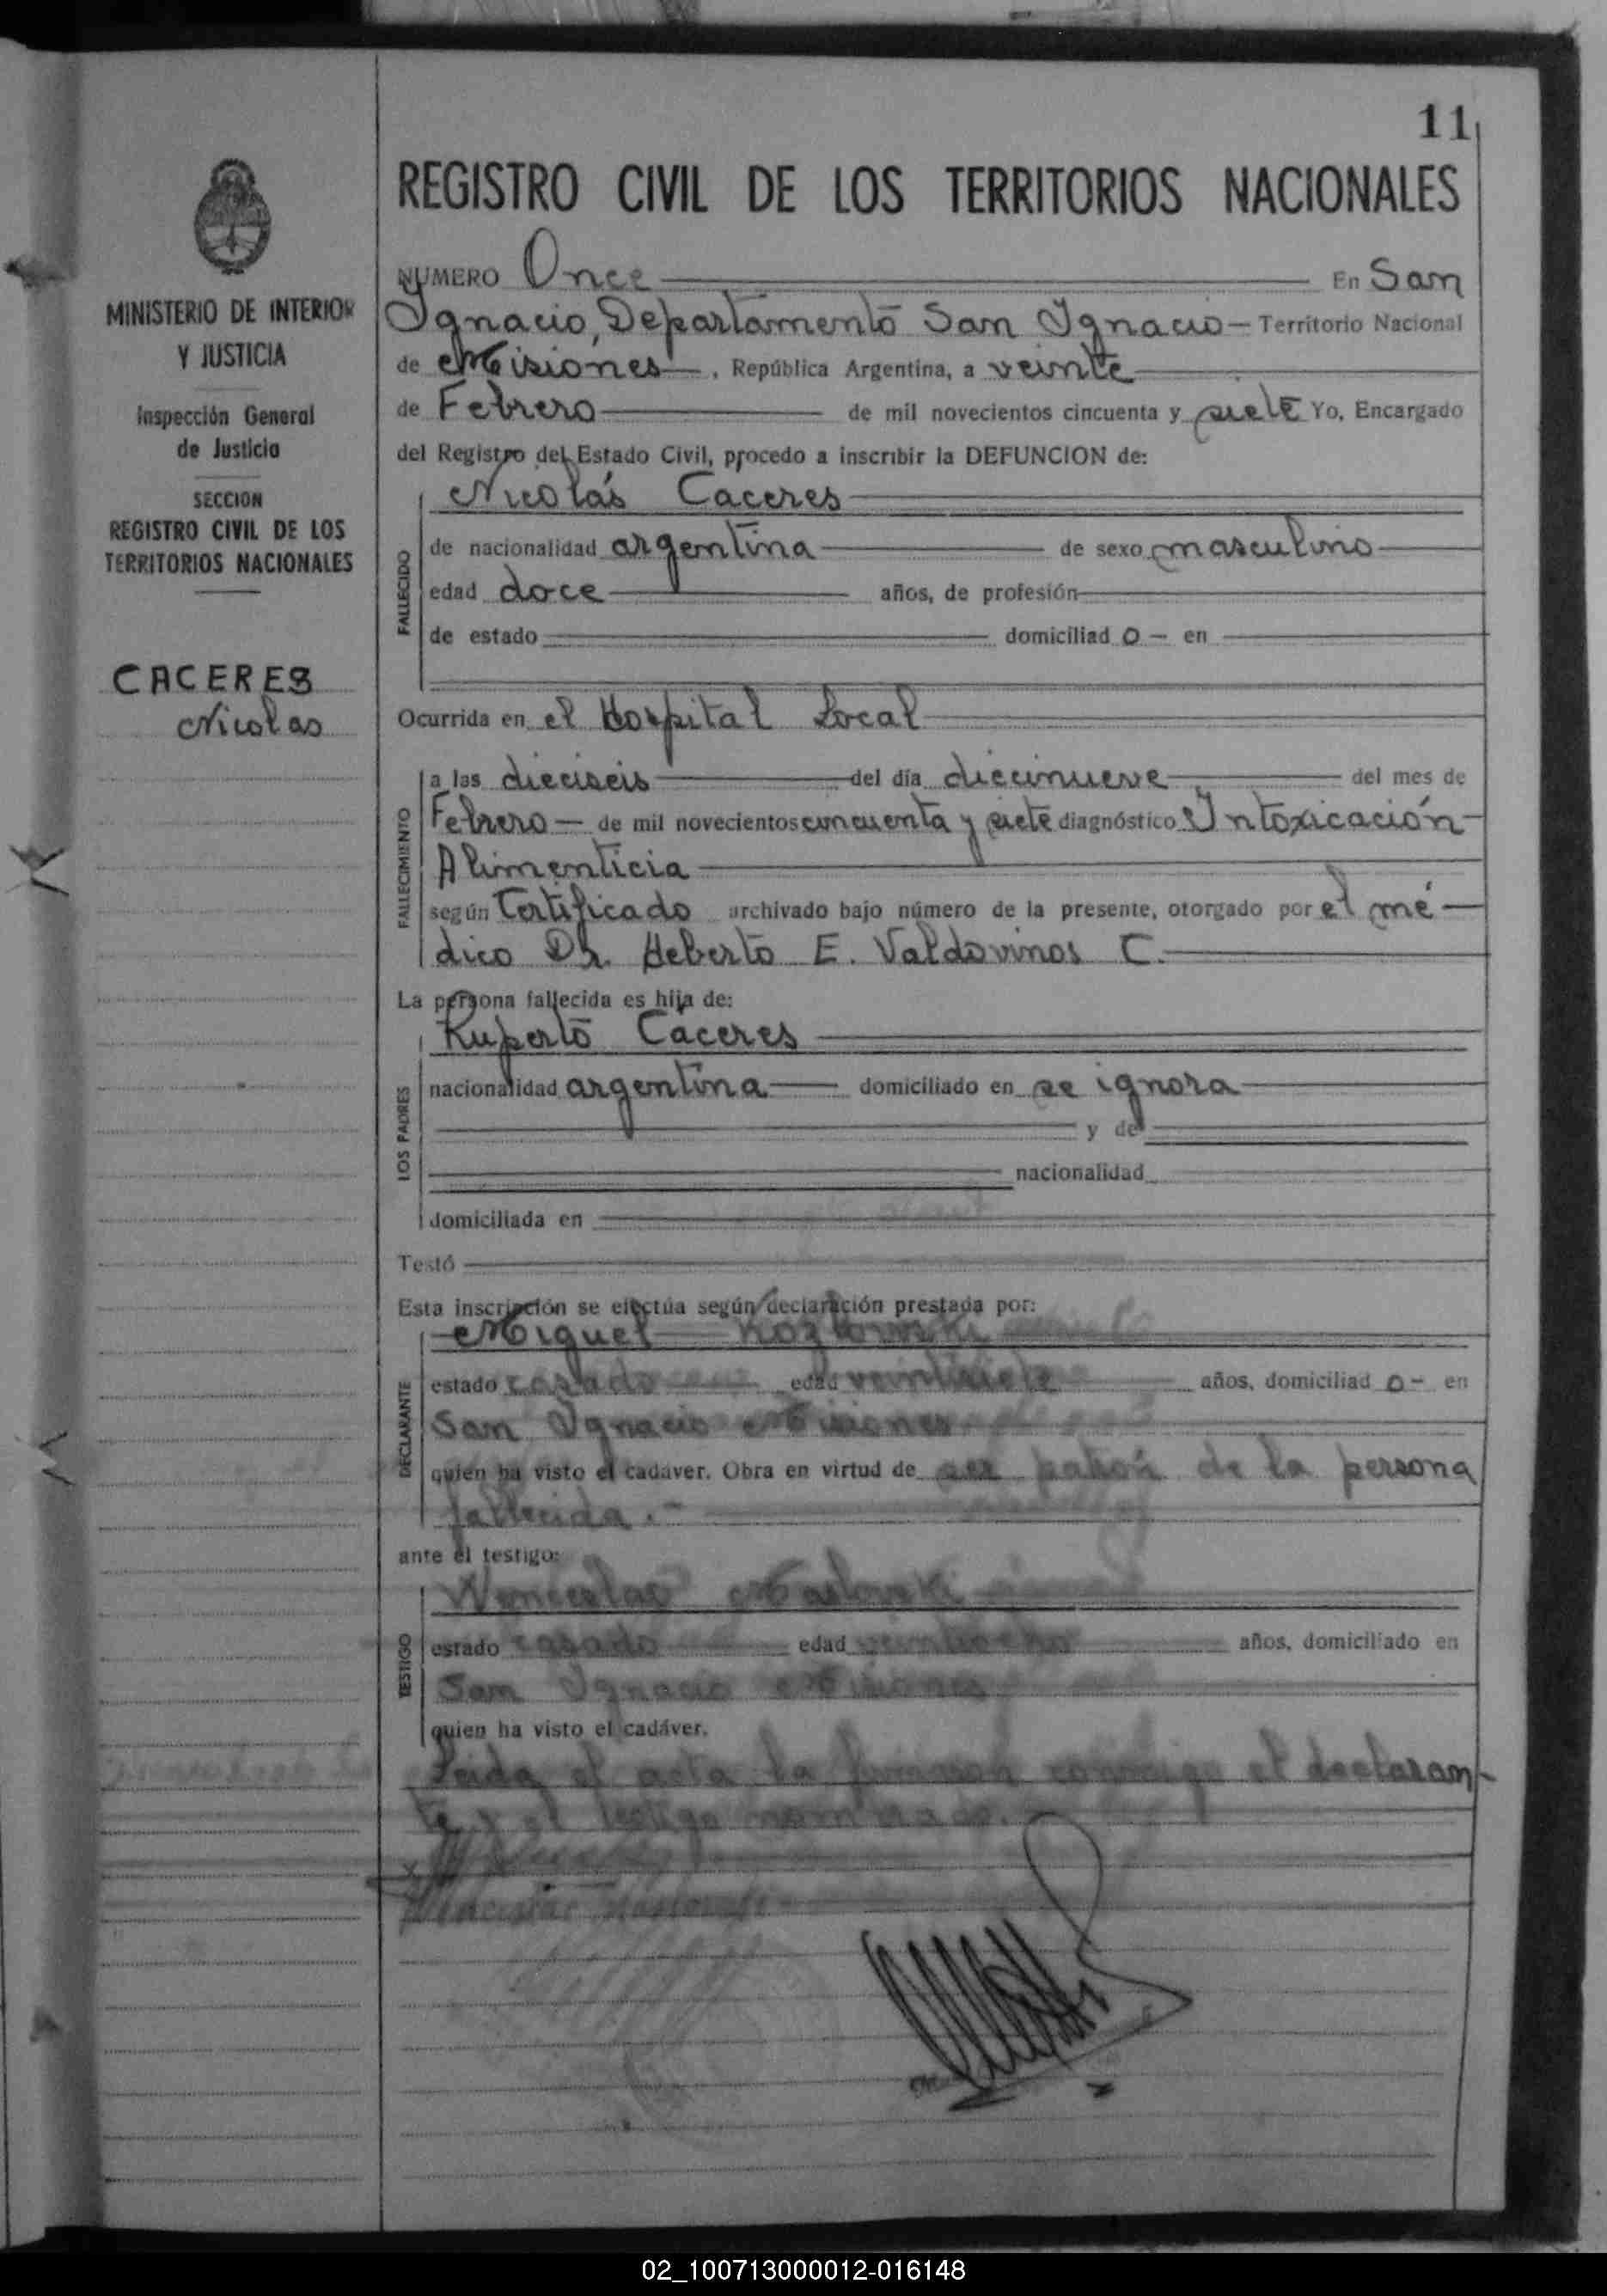 11
REGISTRO CIVIL DE LOS TERRITORIOS NACIONALES
MINISTERIO DE INTERIOR
Y JUSTICIA
Inspección General
de Justicia
SECCION
REGISTRO CIVIL DE LOS
TERRITORIOS NACIONALES
CACERES
Nicolas
NUMERO Once En San
Ignacio, Departamento San Ignacio - Territorio Nacional
de Misiones, República Argentina, a veinte
de Febrero de mil novecientos cincuenta y siete Yo, Encargado
del Registro del Estado Civil, procedo a inscribir la DEFUNCION de:
FALLECIDO
Nicolás Caceres
de nacionalidad argentina de sexo masculino
edad doce años, de profesión
de estado domiciliad o - en
Ocurrida en el Hospital Local
FALLECIMIENTO
a las dieciseis del día diecinueve del mes de
Febrero - de mil novecientos cincuenta y siete diagnóstico Intoxicación
Alimenticia
según Certificado archivado bajo número de la presente, otorgado por el mé-
dico Dr. Heberto E. Valdovinos C.
La persona fallecida es hija de:
LOS PADRES
Ruperto Caceres
nacionalidad argentina domiciliado en se ignora
y de
nacionalidad
domiciliada en
Testó
Esta inscripción se efectúa según declaración prestada por:
DECLARANTE
Miguel Kozlowski
estado casado edad veintisiete años, domiciliad o - en
San Ignacio Misiones
quien ha visto el cadáver. Obra en virtud de ser patrón de la persona
fallecida.-
ante el testigo:
TESTIGO
Wenceslao
estado casado edad veintiocho años, domiciliado en
San Ignacio Misiones
quien ha visto el cadáver.
Leida el acta la firmaron conmigo el declaran-
te y el testigo nominado.
02_100713000012-016148